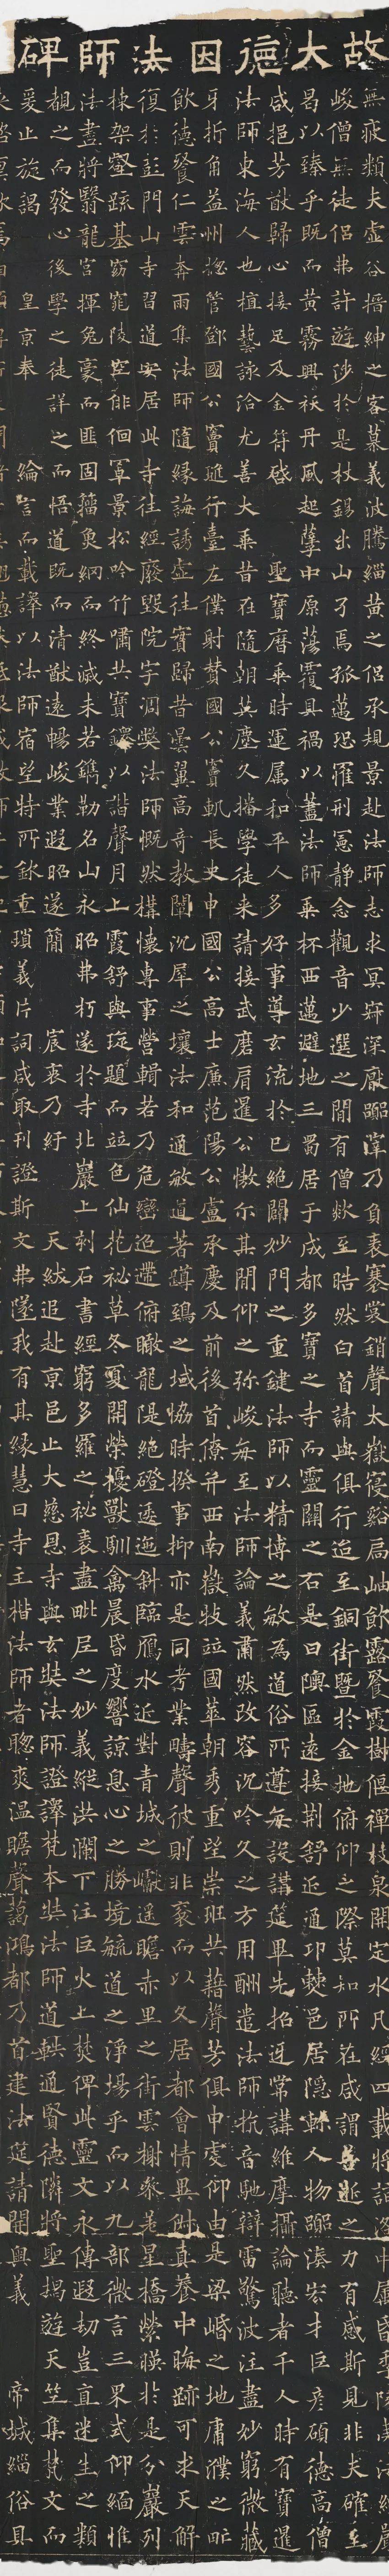 故大德因法師碑
無疲類夫虛谷搢紳之客慕義波騰緇黃之侶承規景赴法師志求冥寂深厭囂滓乃負袠褰裳銷聲太嶽寢谿扃岫飲露餐霞樹偃禪枝泉開定水凡經四載將詣洛中屬昏季陵夷法綱嚴
峻僧無徒侶弗許遊涉於是杖錫出山孑焉孤邁恐罹刑憲靜念觀音少選之間有僧欻至皓然白首請與俱行迨至銅街暨於金地俯仰之際莫知所在咸謂善逝之力有感斯見非夫確至
曷以臻乎既而黃霧興祅丹風起孽中原蕩覆具禍以藎法師乘杯西邁避地三蜀居于成都多寶之寺而靈關之右是曰隩區遠接荊舒近通邛僰邑居隱軫人物囂湊宏才巨彥碩德高僧
咸挹芳猷歸心接足及金符啟聖寶曆乘時運屬和平人多好事導玄流於已絕闢妙門之重鍵法師以精博之敏為道俗所遵每設講筵畢先招迓常講維摩攝論聽者千人時有寶暹
法師東海人也植藝該洽尤善大乘昔在隨朝英塵久播學徒來請接武磨肩暹公傲尔其間仰之彌峻每至法師論義肅然改容沉吟久之方用酬遣法師抗音馳辯雷驚波注盡妙窮微藏
牙折角益州總管鄧國公竇璡行臺左僕射贊國公竇軌長史申國公高士廉范陽公盧承慶及前後首僚并西南嶽牧並國華朝秀重望崇班共藉聲芳俱申虔仰由是梁㟭之地庸濮之甿
飲德餐仁雲奔雨集法師隨緣誨誘虛往實歸昔曇翼高奇教闡沅犀之壤法和通敏道著瀵鵄之域恊時揆事抑亦是同考業疇聲彼則非袤而以久居都會情異俗真養中晦跡可求天解
復於彭門山寺習道安居此寺往經廢毀院宇凋弊法師慨然構懷專事營輯若乃危巒迢遰俯瞰龍隄絕磴逶迤斜臨鴈水近對青城之巘遙瞻赤里之街雲榭參差星橋縈映於是分巖列
棟架壑疏基窈窕陵空俳佪罩景松吟竹嘯共寶鐸以諧聲月上霞舒與琁題而並色仙花秘草冬夏開榮擾獸馴禽晨昏度響諒息心之勝境毓道之淨場乎而以九部微言三界式仰緬惟
法盡將翳龍宮揮兔豪而匪固籀魚網而終滅未若鐫勒名山永昭弗朽遂於寺北巖上刻石書經窮多羅之祕袠盡毗尼之妙義縱洪瀾下注巨火上焚俾此靈文永傳遐劫豈直迷生之類
覩之而發心後學之徒詳之而悟道既而清猷遠暢峻業遐昭遂簡宸衷乃紆天紱追赴京邑止大慈恩寺與玄奘法師證譯梵本奘法師道軼通賢德鄰將聖揭遊天竺集梵文而
爰止旋謁皇京奉綸言而載譯以法師宿望特所欽重瑣義片詞咸取刊證斯文弗墜我有其緣慧日寺主楷法師者聰爽溫贍聲藹鴻都乃首建法筵請開奧義帝城緇俗具